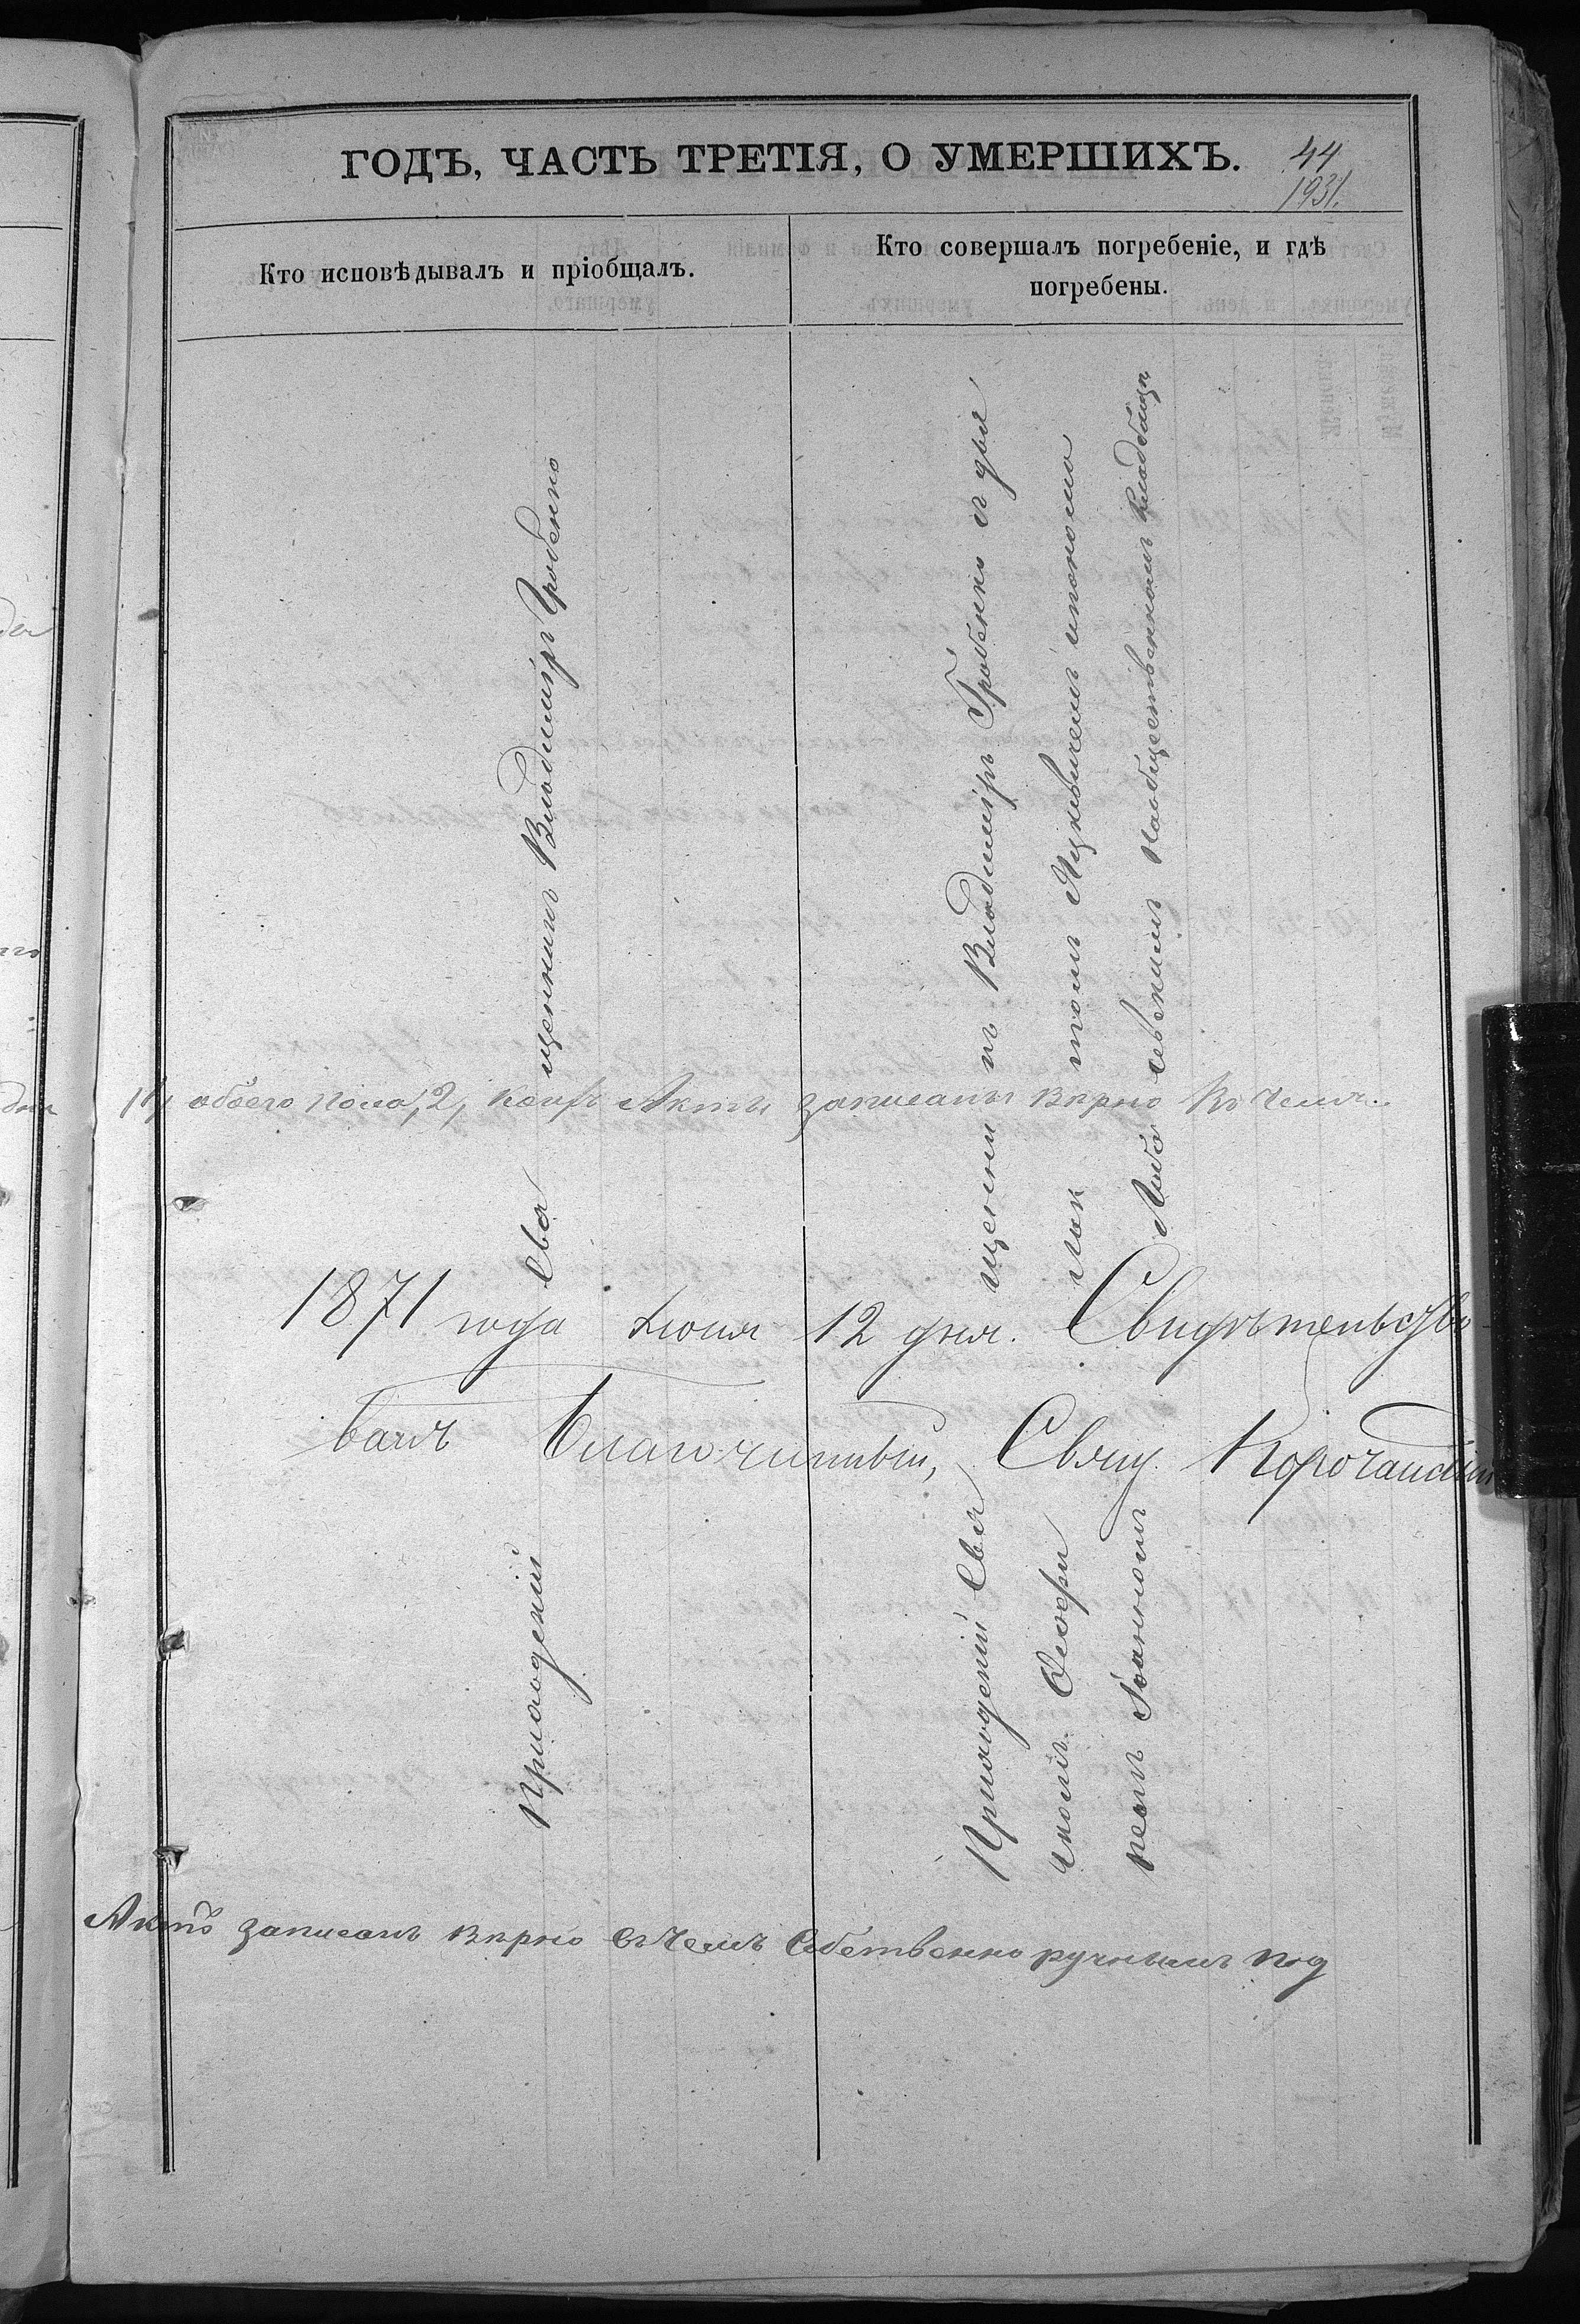 ГОДЪ, ЧАСТЬ ТРЕТІЯ, О УМЕРШИХЪ.
44
1931.
Кто исповѣдывалъ и пріобщалъ.
Кто совершалъ погребеніе, и гдѣ
погребены.
Приходскій Священникъ Владиміръ Гробенко
Приходскій Священникъ Владиміръ Гробенко и дья
чкомъ Яцкевичемъ и пономоремъ
Іоанномъ Любавскимъ на общественномъ кладбищѣ
обоего пола 2, Актъ записанъ вѣрно въ чемъ
1871 года Іюня 12 дня. Свидѣтельство
валъ Благочинный, Свящ. Корочанскій
Актъ записанъ вѣрно въ чемъ собственно ручнымъ под